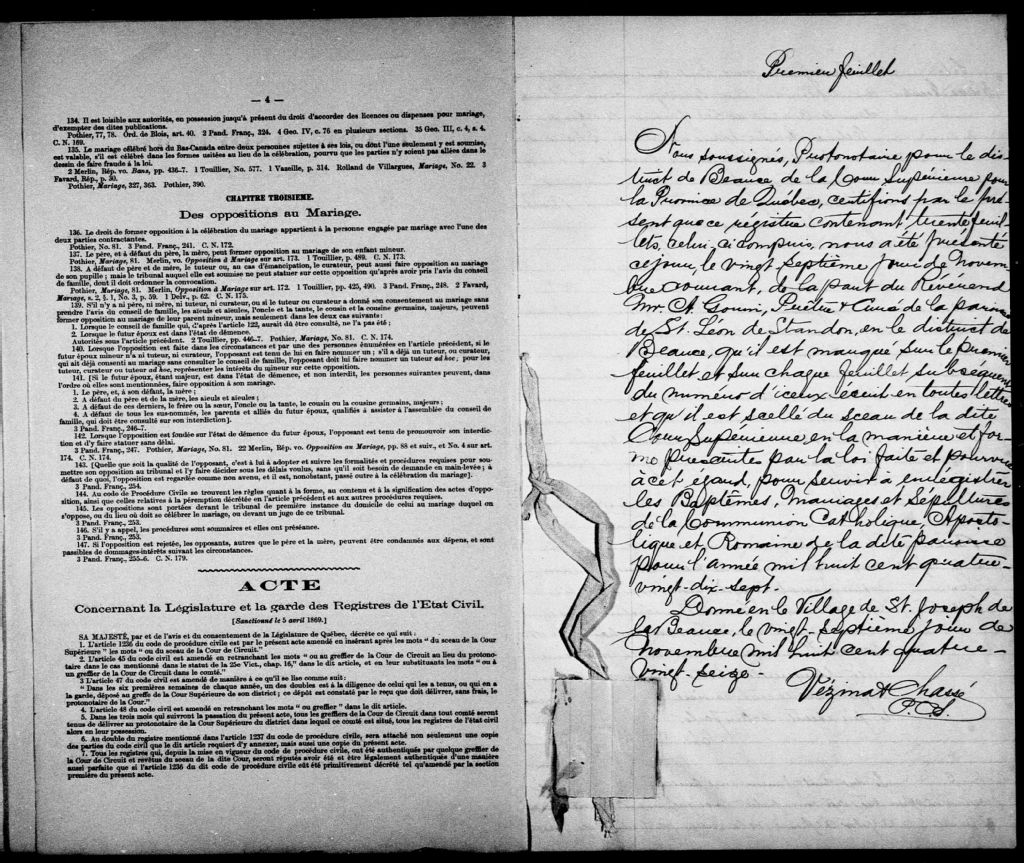 — 4 —
134. Il est loisible aux autorités, en possession jusqu'à présent du droit d'accorder des licences ou dispenses pour mariage,
d'exempter des dites publications.
Pothier, 77, 78. Ord. de Blois, art. 40. 2 Pand. Franç., 324. 4 Geo. IV, c. 76 en plusieurs sections. 35 Geo. III, c. 4, s. 4.
C. N. 169.
135. Le mariage célébré hors du Bas-Canada entre deux personnes sujettes à ses lois, ou dont l'une seulement y est soumise,
est valable, s'il est célébré dans les formes usitées au lieu de la célébration, pourvu que les parties n'y soient pas allées dans le
dessin de faire fraude à la loi.
2 Merlin, Rép. vo. Bans, pp. 436-7. 1 Touillier, No. 577. 1 Vazeille, p. 314. Rolland de Villargues, Mariage, No. 22. 3
Favard, Rép., p. 30.
Pothier, Mariage, 327, 363. Pothier, 390.
CHAPITRE TROISIEME.
Des oppositions au Mariage.
136. Le droit de former opposition à la célébration du mariage appartient à la personne engagée par mariage avec l'une des
deux parties contractantes.
Pothier, No. 81. 3 Pand. Franç., 241. C. N. 172.
137. Le père, et à défaut du père, la mère, peut former opposition au mariage de son enfant mineur.
Pothier, Mariage, 81. Merlin, vo. Opposition à Mariage sur art. 173. 1 Touillier, p. 489. C. N. 173.
138. A défaut de père et de mère, le tuteur ou, au cas d'émancipation, le curateur, peut aussi faire opposition au mariage
de son pupille ; mais le tribunal auquel elle est soumise ne peut statuer sur cette opposition qu'après avoir pris l'avis du conseil
de famille, dont il doit ordonner la convocation.
Pothier, Mariage, 81. Merlin, Opposition à Mariage sur art. 172. 1 Touillier, pp. 425, 490. 3 Pand. Franç., 248. 2 Favard,
Mariage, s. 2, § 1, No. 3, p. 59. 1 Delv., p. 62. C. N. 175.
139. S'il n'y a ni père, ni mère, ni tuteur, ni curateur, ou si le tuteur ou curateur a donné son consentement au mariage sans
prendre l'avis du conseil de famille, les aïeuls et aïeules, l'oncle et la tante, le cousin et la cousine germains, majeurs, peuvent
former opposition au mariage de leur parent mineur, mais seulement dans les deux cas suivants :
1. Lorsque le conseil de famille qui, d'après l'article 122, aurait dû être consulté, ne l'a pas été ;
2. Lorsque le futur époux est dans l'état de démence.
Autorités sous l'article précédent. 2 Touillier, pp. 446-7. Pothier, Mariage, No. 81. C. N. 174.
140. Lorsque l'opposition est faite dans les circonstances et par une des personnes énumérées en l'article précédent, si le
futur époux mineur n'a ni tuteur, ni curateur, l'opposant est tenu de lui en faire nommer un ; s'il a déjà un tuteur, ou curateur,
qui ait déjà consenti au mariage sans consulter le conseil de famille, l'opposant doit lui faire nommer un tuteur ad hoc ; pour les
tuteur, curateur ou tuteur ad hoc, représenter les intérêts du mineur sur cette opposition.
141. [Si le futur époux, étant majeur, est dans l'état de démence, et non interdit, les personnes suivantes peuvent, dans
l'ordre où elles sont mentionnées, faire opposition à son mariage.
1. Le père, et, à son défaut, la mère ;
2. A défaut du père et de la mère, les aïeuls et aïeules ;
3. A défaut de ces derniers, le frère ou la sœur, l'oncle ou la tante, le cousin ou la cousine germains, majeurs ;
4. A défaut de tous les sus-nommés, les parents et alliés du futur époux, qualifiés à assister à l'assemblée du conseil de
famille, qui doit être consulté sur son interdiction].
3 Pand. Franç., 246-7.
142. Lorsque l'opposition est fondée sur l'état de démence du futur époux, l'opposant est tenu de promouvoir son interdic-
tion et d'y faire statuer sans délai.
3 Pand. Franç., 247. Pothier, Mariage, No. 81. 22 Merlin, Rép. vo. Opposition au Mariage, pp. 88 et suiv., et No. 4 sur art.
174. C. N. 174.
143. [Quelle que soit la qualité de l'opposant, c'est à lui à adopter et suivre les formalités et procédures requises pour sou-
mettre son opposition au tribunal et l'y faire décider sous les délais voulus, sans qu'il soit besoin de demande en main-levée ; à
défaut de quoi, l'opposition est regardée comme non avenu, et il est, nonobstant, passé outre à la célébration du mariage].
3 Pand. Franç., 254.
144. Au code de Procédure Civile se trouvent les règles quant à la forme, au contenu et à la signification des actes d'oppo-
sition, ainsi que celles relatives à la péremption décrétée en l'article précédent et aux autres procédures requises.
145. Les oppositions sont portées devant le tribunal de première instance du domicile de celui au mariage duquel on
s'oppose, ou du lieu où doit se célébrer le mariage, ou devant un juge de ce tribunal.
3 Pand. Franç., 253.
146. S'il y a appel, les procédures sont sommaires et elles ont préséance.
3 Pand. Franç., 253.
147. Si l'opposition est rejetée, les opposants, autres que le père et la mère, peuvent être condamnés aux dépens, et sont
passibles de dommages-intérêts suivant les circonstances.
3 Pand. Franç., 255-6. C. N. 179.
ACTE
Concernant la Législature et la garde des Registres de l'Etat Civil.
[Sanctionné le 5 avril 1869.]
SA MAJESTÉ, par et de l'avis et du consentement de la Législature de Québec, décrète ce qui suit :
1. L'article 1236 du code de procédure civile est par le présent acte amendé en insérant après les mots “ du sceau de la Cour
Supérieure ” les mots “ ou du sceau de la Cour de Circuit.”
2. L'article 45 du code civil est amendé en retranchant les mots “ ou au greffier de la Cour de Circuit au lieu du protono-
taire dans le cas mentionné dans le statut de la 25e Vict., chap. 16,” dans le dit article, et en leur substituants les mots “ ou à
un greffier de la Cour de Circuit dans le comté.”
3 L'article 47 du code civil est amendé de manière à ce qu'il se lise comme suit :
“ Dans les six premières semaines de chaque année, un des doubles est à la diligence de celui qui les a tenus, ou qui en a
la garde, déposé au greffe de la Cour Supérieure de son district ; ce dépôt est constaté par le reçu que doit délivrer, sans frais, le
protonotaire de la Cour.”
4. L'article 48 du code civil est amendé en retranchant les mots “ ou greffier ” dans le dit article.
5. Dans les trois mois qui suivront la passation du présent acte, tous les greffiers de la Cour de Circuit dans tout comté seront
tenus de délivrer au protonotaire de la Cour Supérieure du district dans lequel ce comté est situé, tous les registres de l'état civil
alors en leur possession.
6. Au double du registre mentionné dans l'article 1237 du code de procédure civile, sera attaché non seulement une copie
des parties du code civil que le dit article requiert d'y annexer, mais aussi une copie du présent acte.
7. Tous les registres qui, depuis la mise en vigueur du code de procédure civile, ont été authentiqués par quelque greffier de
la Cour de Circuit et revêtus du sceau de la dite Cour, seront réputés avoir été et être légalement authentiqués d'une manière
aussi parfaite que si l'article 1236 du dit code de procédure civile eût été primitivement décrété tel qu'amendé par la section
première du présent acte.
Premier feuillet
Nous soussignés, Protonotaire pour le dis-
trict de Beauce de la Cour Supérieure pour
la Province de Québec, certifions par le pré-
sent que ce régistre contenant trente feuil-
lets, celui-ci compris, nous a été présenté
ce jour, le vingt septième jour de Novem-
bre courant, de la part du Révérend
Mr. A. Gouin, Prêtre & Curé de la paroisse
de St. Léon de Standon, en le district de
Beauce, qu'il est marqué sur le premier
feuillet et sur chaque feuillet subséquent
du numéro d'iceux écrit en toutes lettres
et qu'il est scellé du sceau de la dite
Cour Supérieure en la manière et for-
me prescrites par la loi faite et pourvue
à cet égard, pour servir à enrégistrer
les Baptêmes, Mariages et Sépultures
de la Communion Catholique, Aposto-
lique et Romaine de la dite paroisse
pour l'année mil huit cent quatre-
vingt-dix-sept.
Donné en le Village de St. Joseph de
la Beauce, le vingt-septième jour de
Novembre mil huit cent quatre-
vingt-seize.
Vézina & Chassé
P. C. S.